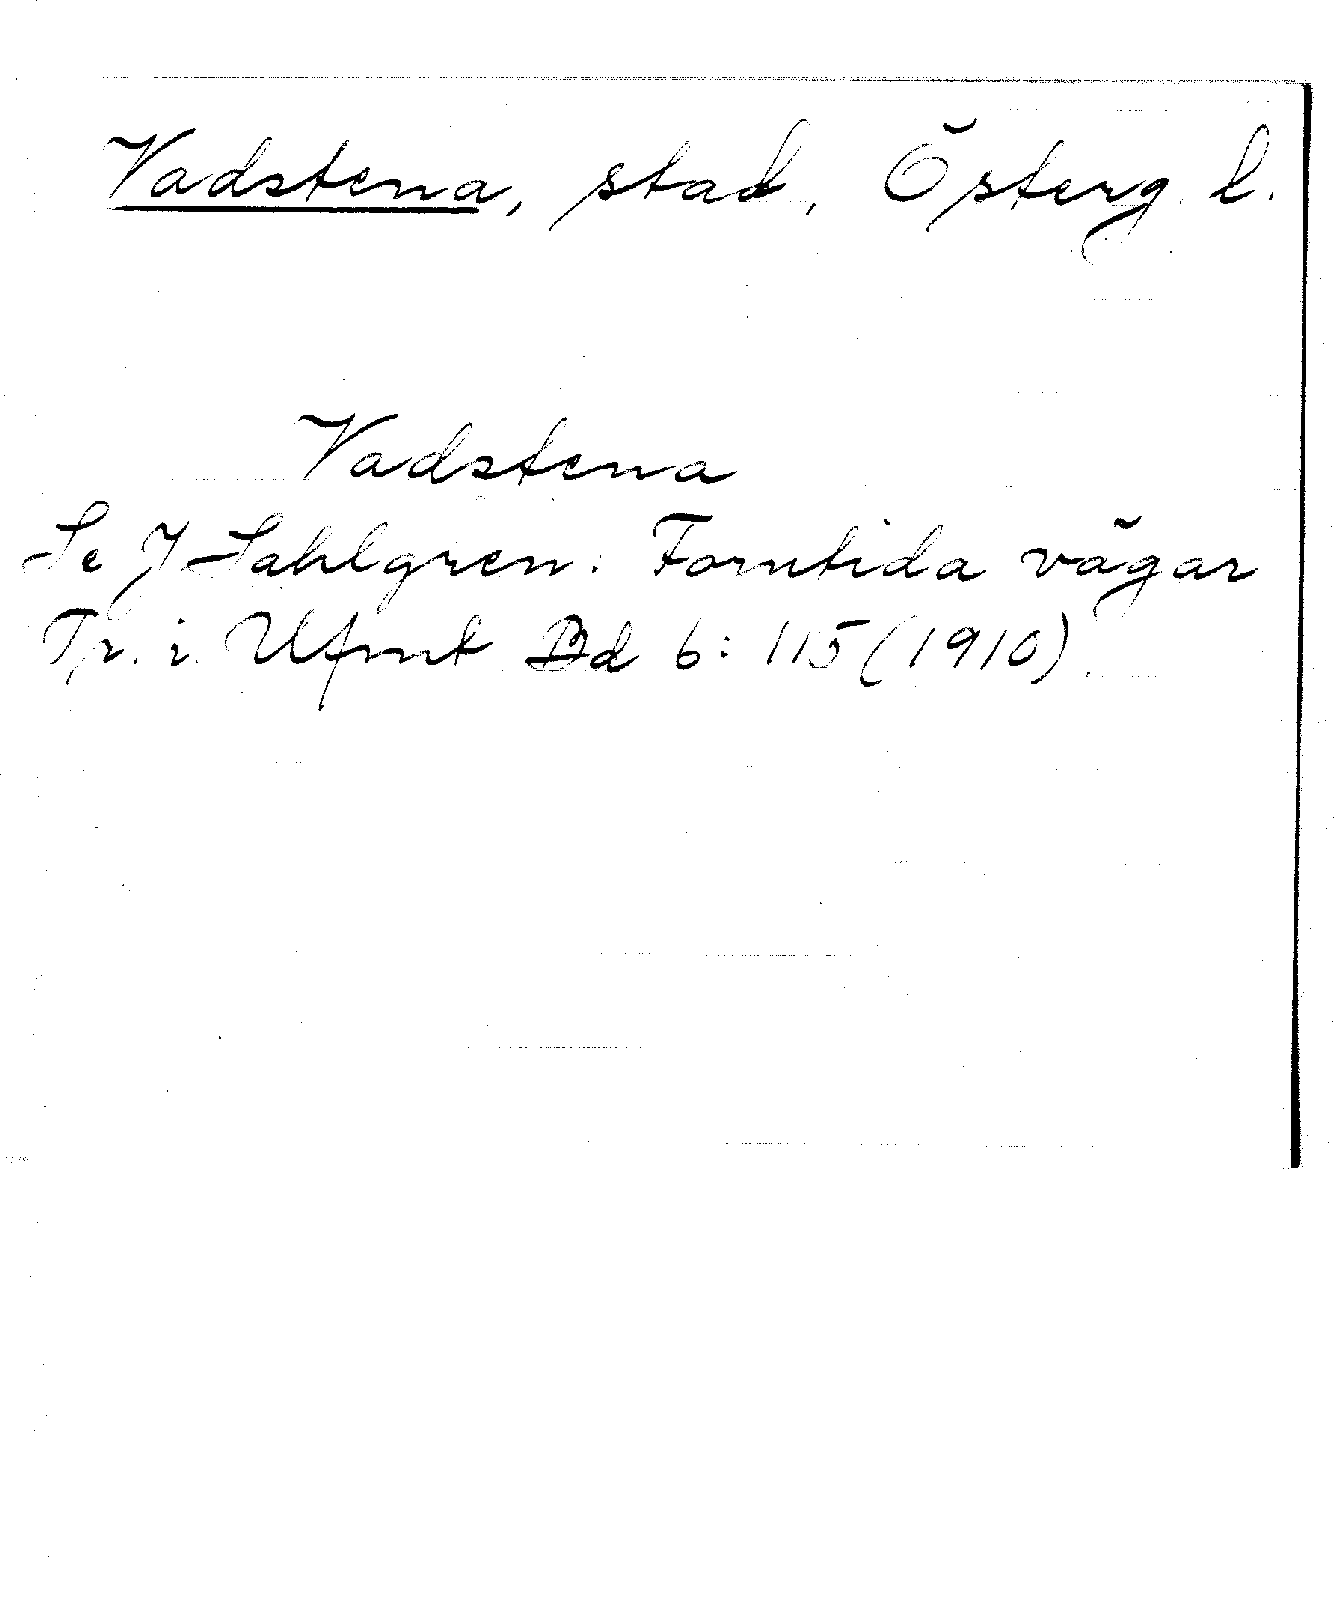 Vadstena, stad, Österg. l.
Vadstena
Se J Sahlgren: Forntida vägar
Tr. i. Ufmt Bd 6: 115 (1910).